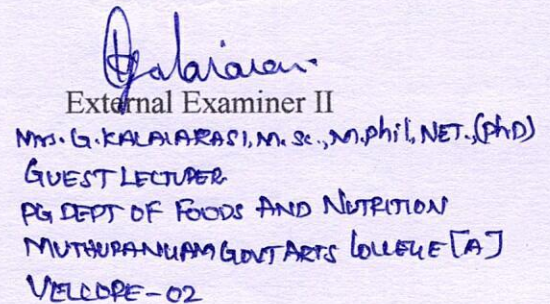 External Examiner II
Mrs. G. KALAIARASI, M. Sc., M.phil, NET., (PhD)
GUEST LECTURER
PG DEPT OF FOODS AND NUTRITION
MUTHURANGAM GOVT ARTS COLLEGE [A]
VELLORE-02